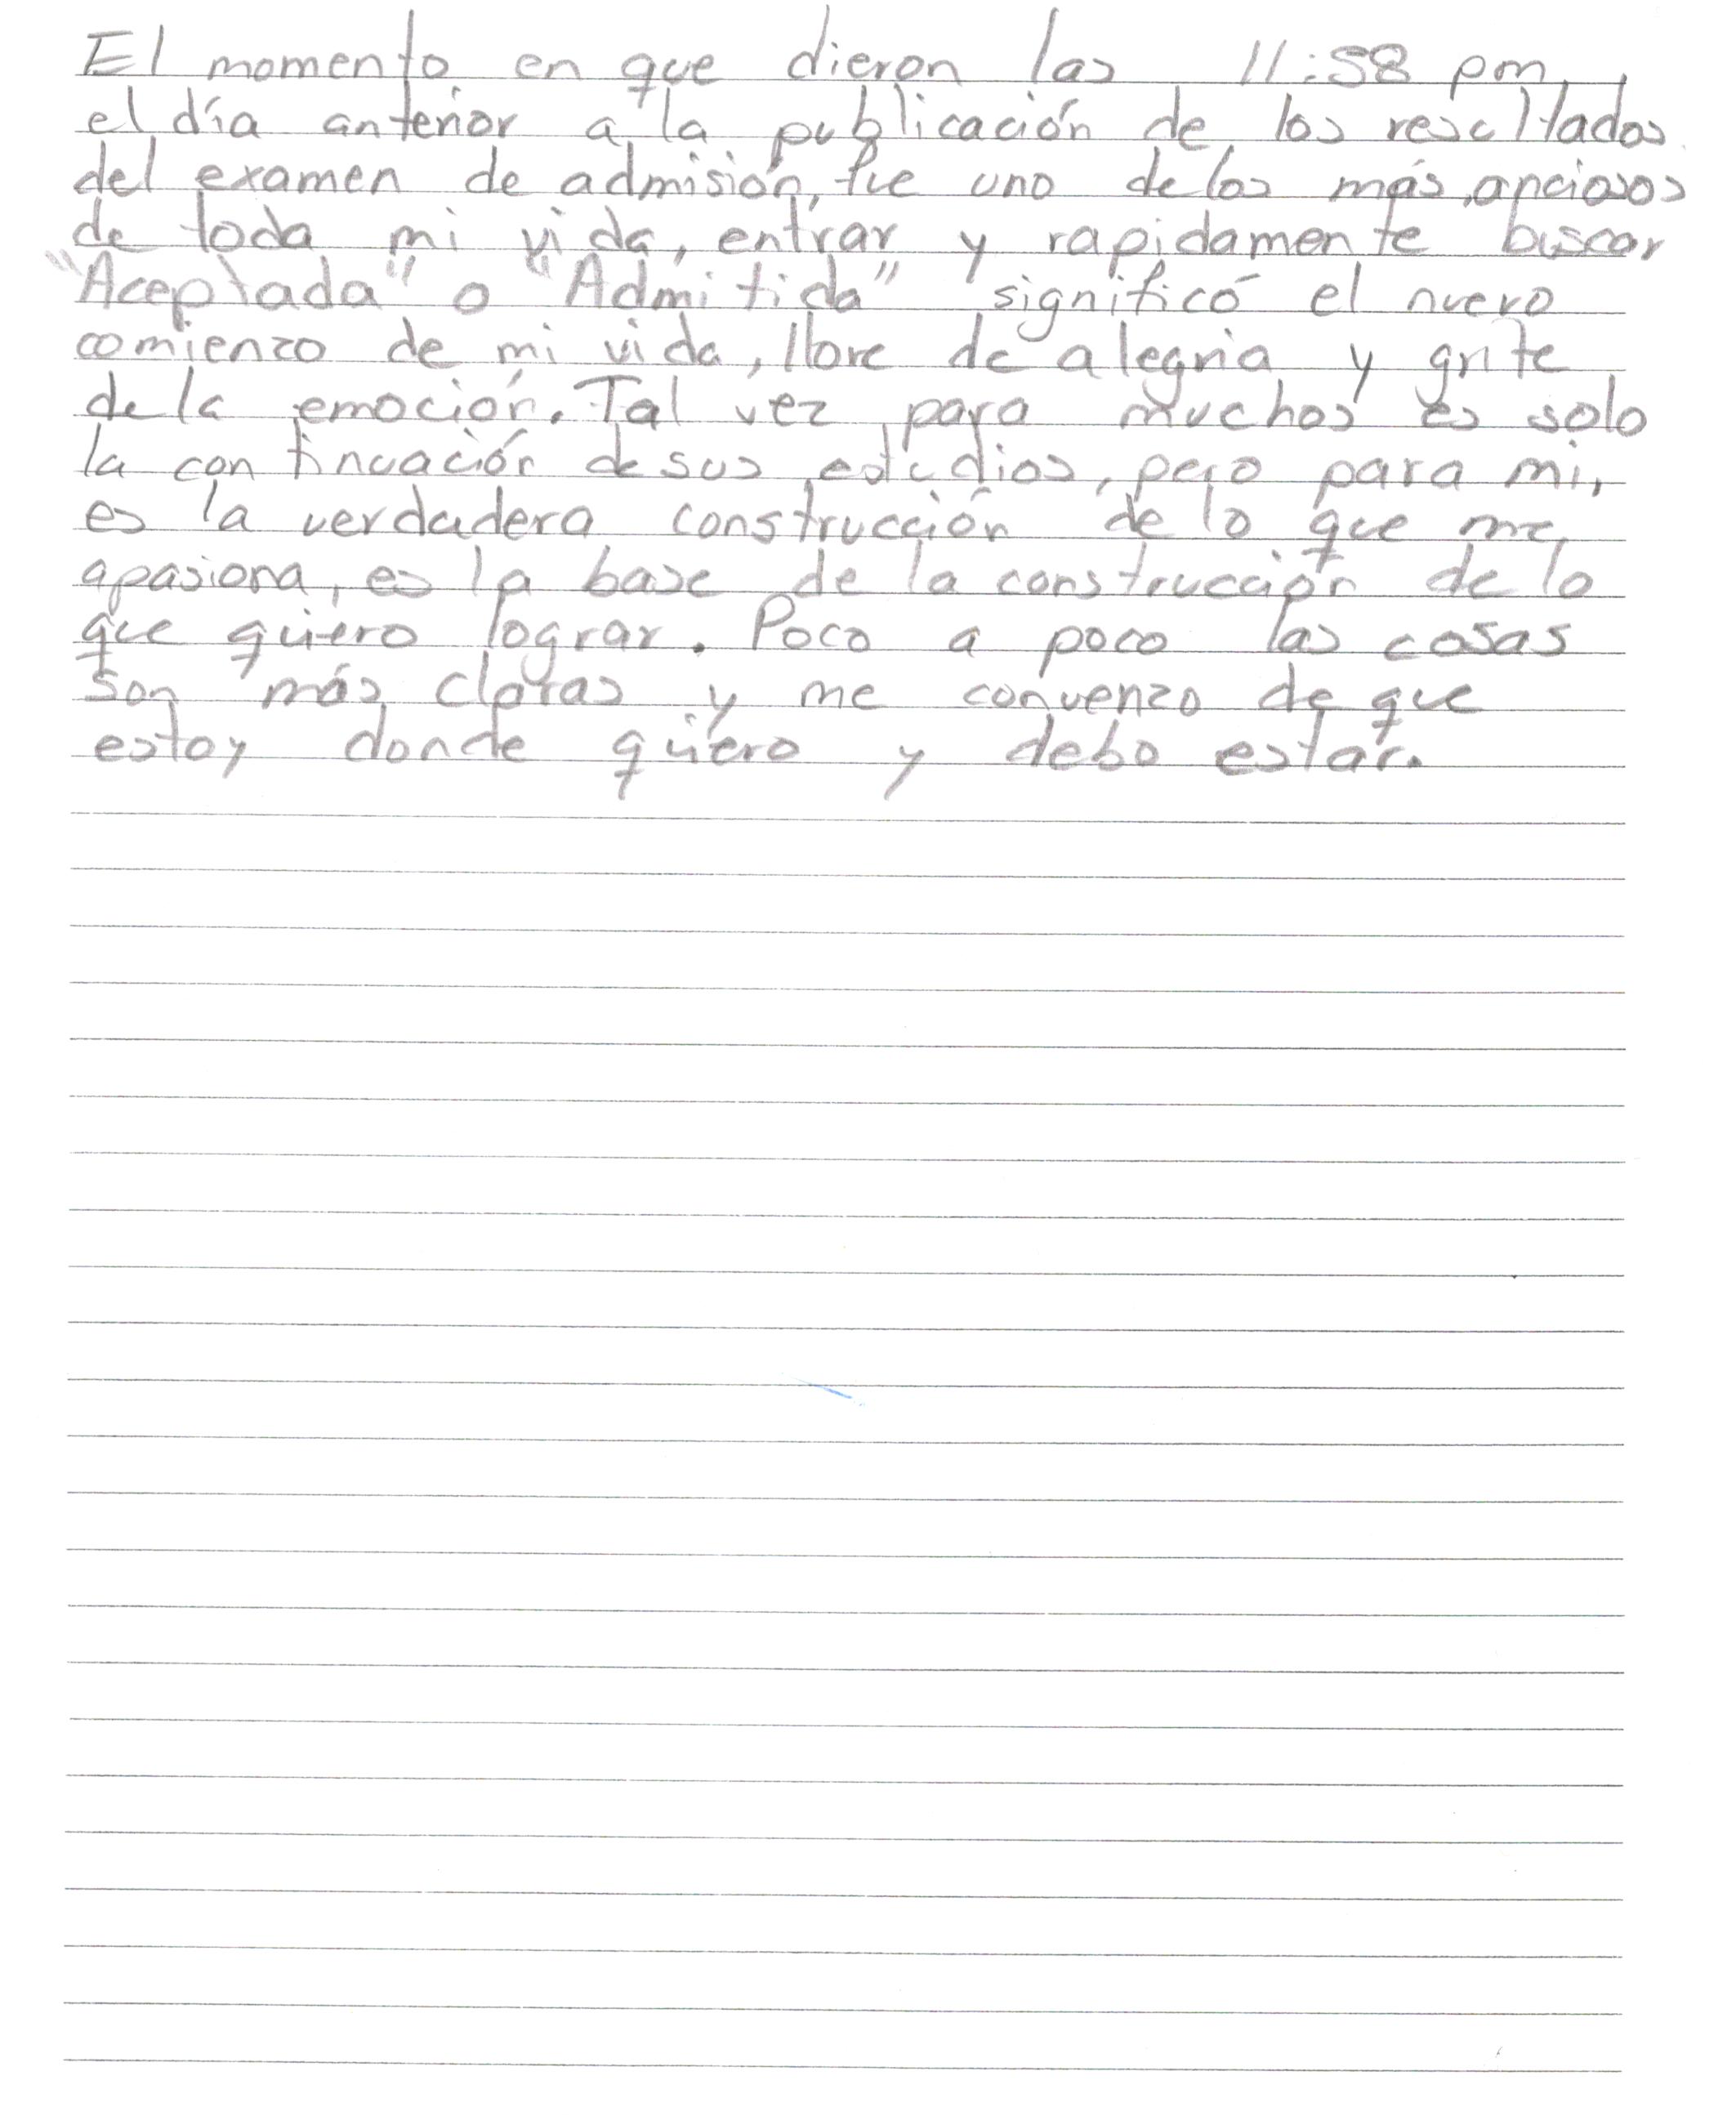 El momento en que dieron las 11:58 pm
el día anterior a la publicación de los resultados
del examen de admisión, fue uno de los más anciosos
de toda mi vida, entrar y rapidamente buscar
"Aceptada" o "Admitida" significó el nuevo
comienzo de mi vida, llore de alegria y grite
de la emoción. Tal vez para muchos es solo
la continuación de sus estudios, pero para mi,
es la verdadera construcción de lo que me
apasiona, es la base de la construcción de lo
que quiero lograr. Poco a poco las cosas
son más claras y me convenzo de que
estoy donde quiero y debo estar.